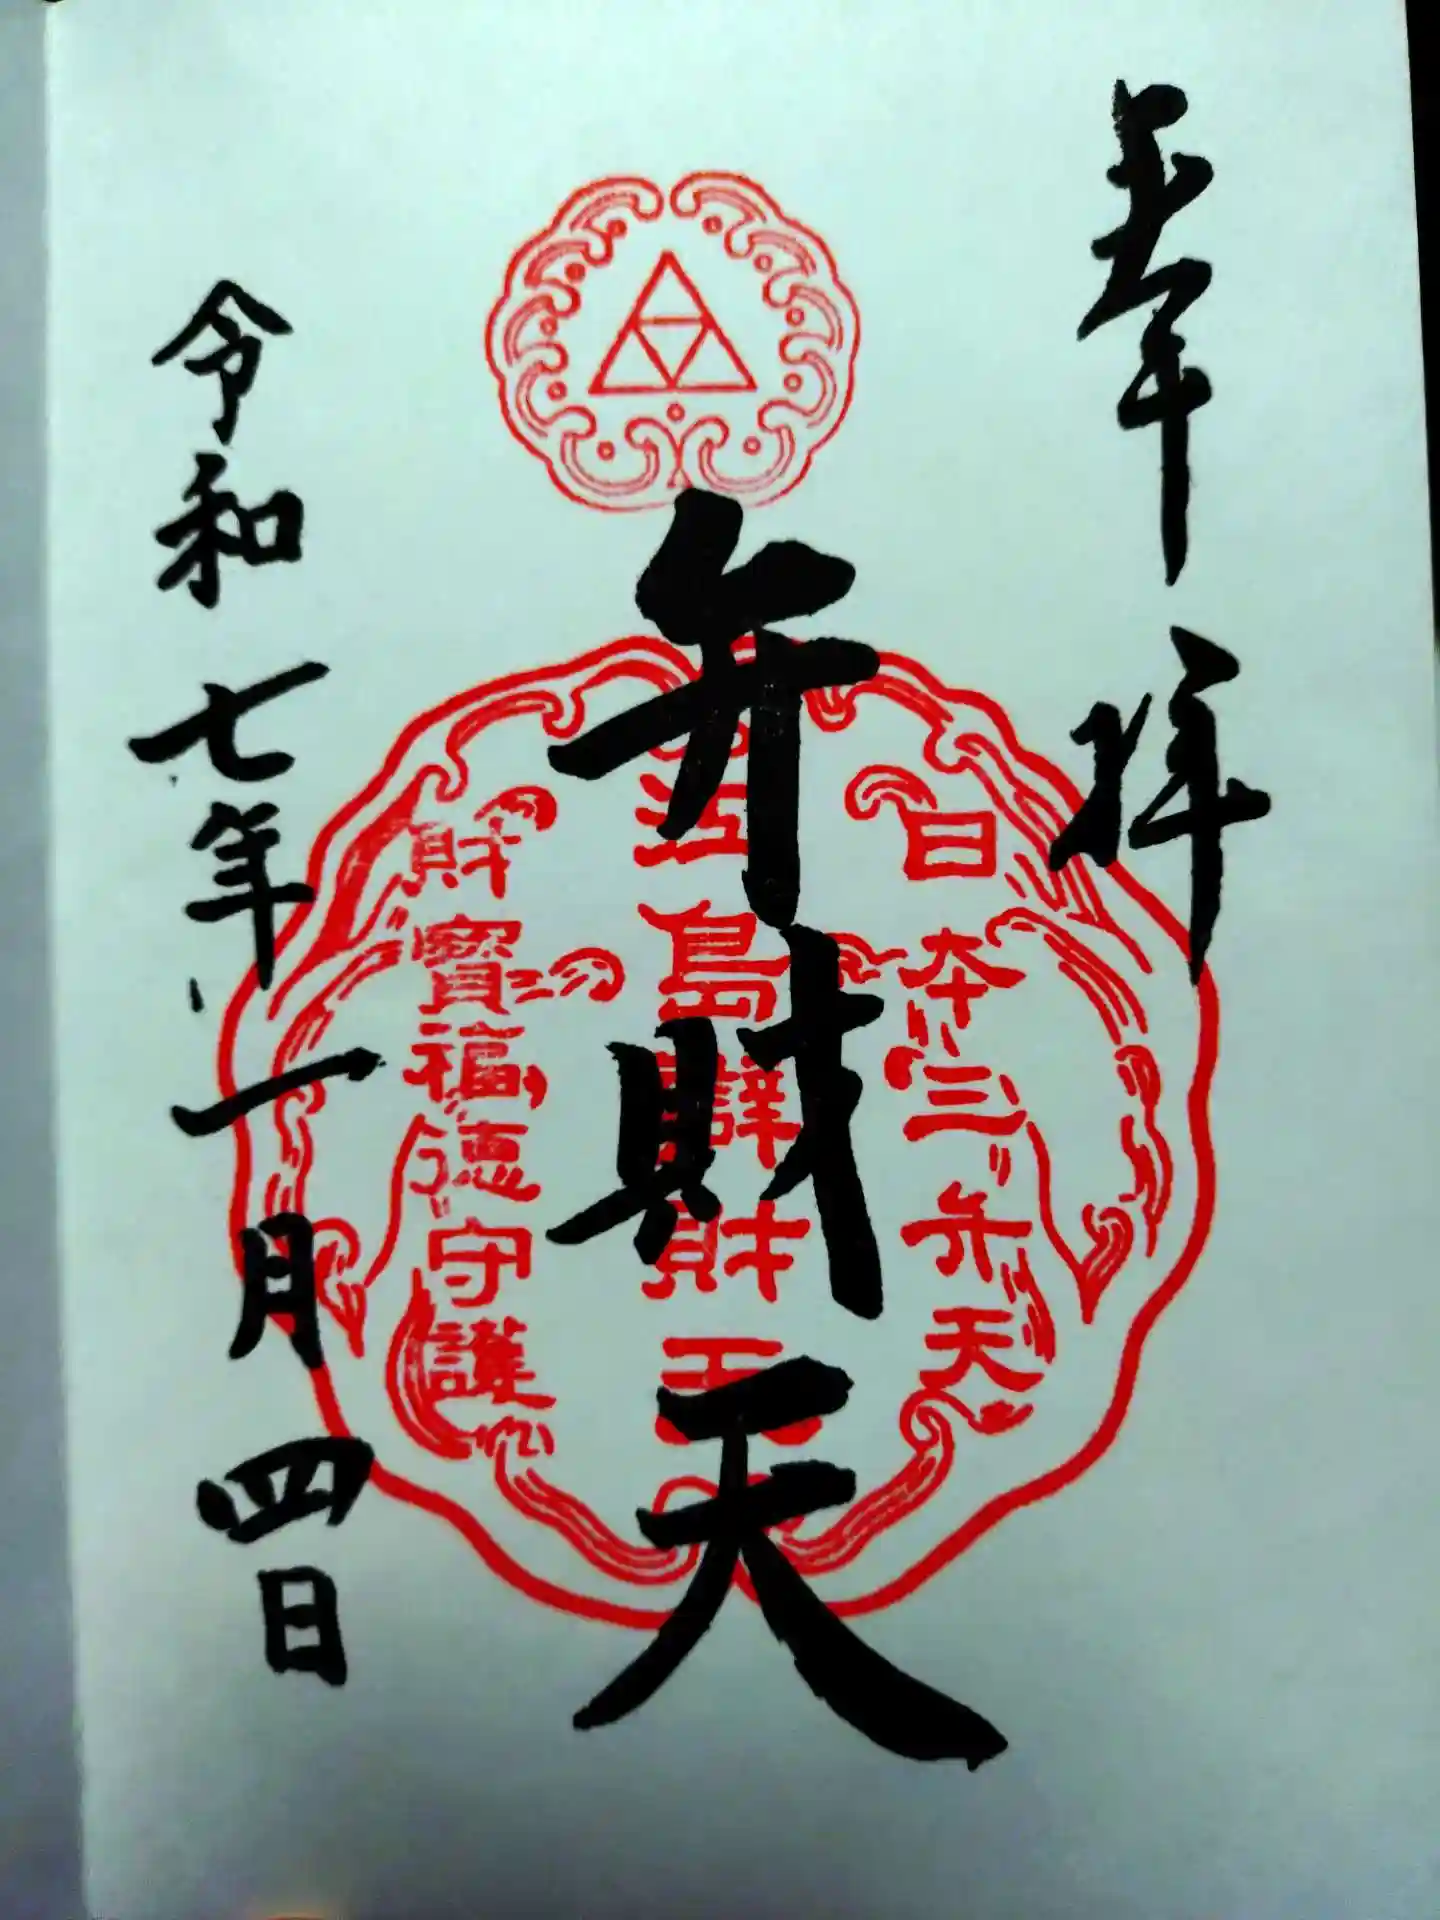 奉拝
日本三弁天
弁財天
江島辯財天
財寶福徳守護
令和七年一月四日